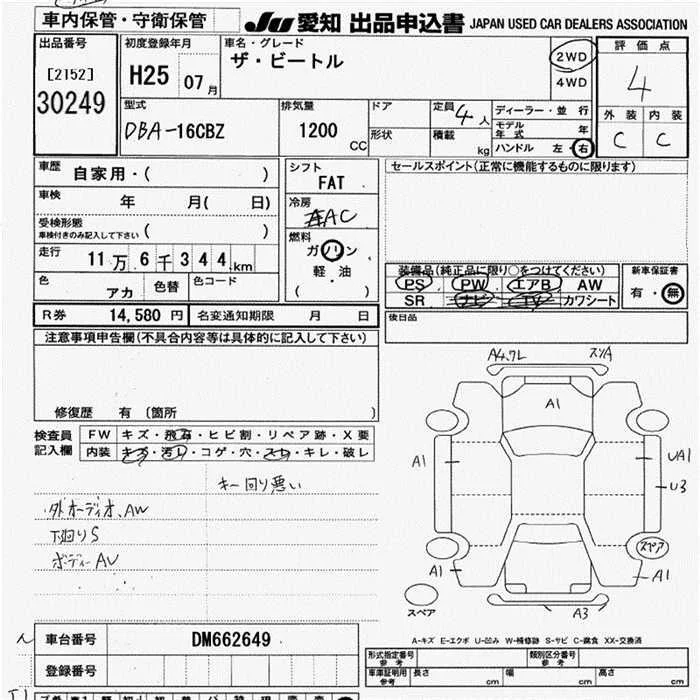 車内保管・守衛保管
JU 愛知 出品申込書 JAPAN USED CAR DEALERS ASSOCIATION
出品番号
[2152]
30249
初度登録年月
H25 07月
車名・グレード
ザ・ビートル
2WD
4WD
評価点
4
外装 内装
C C
型式
DBA-16CBZ
排気量
1200
CC
ドア
形状
定員 4人
積載 kg
ディーラー・並行
モデル年式 年
ハンドル 左・右
車歴 自家用・( )
車検 年 月( 日)
受検形態
車検付きのみ記入して下さい ( )
走行 11万6千344km
色 アカ 色替 色コード
シフト
FAT
冷房
AAC
燃料
ガソリン
軽・油
( )
セールスポイント(正常に機能するものに限ります)
装備品(純正品に限り○をつけてください)
PS PW エアB AW
SR ナビ TV カワシート
新車保証書
有・無
R券 14,580円 名変通知期限 月 日
後日品
注意事項申告欄(不具合内容等は具体的に記入して下さい)
修復歴 有 〔箇所 〕
検査員記入欄
FW キズ・飛石・ヒビ割・リペア跡・X要
内装 キズ・汚レ・コゲ・穴・スレ・キレ・破レ
キー回り悪い
外オーディオ、AW
下廻りS
ボディーAU
A4,7L
スソA
A1
A1
UA1
U3
スペア
A1
A1
A3
スペア
車台番号 DM662649
登録番号
A-キズ E-エクボ U-凹み W-補修跡 S-サビ C-腐食 XX-交換済
形式指定番号
参考
類別区分番号
参考
車庫証明用
参考
長さ cm 幅 cm 高さ cm